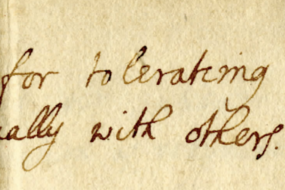 for tolerating
ally with others.